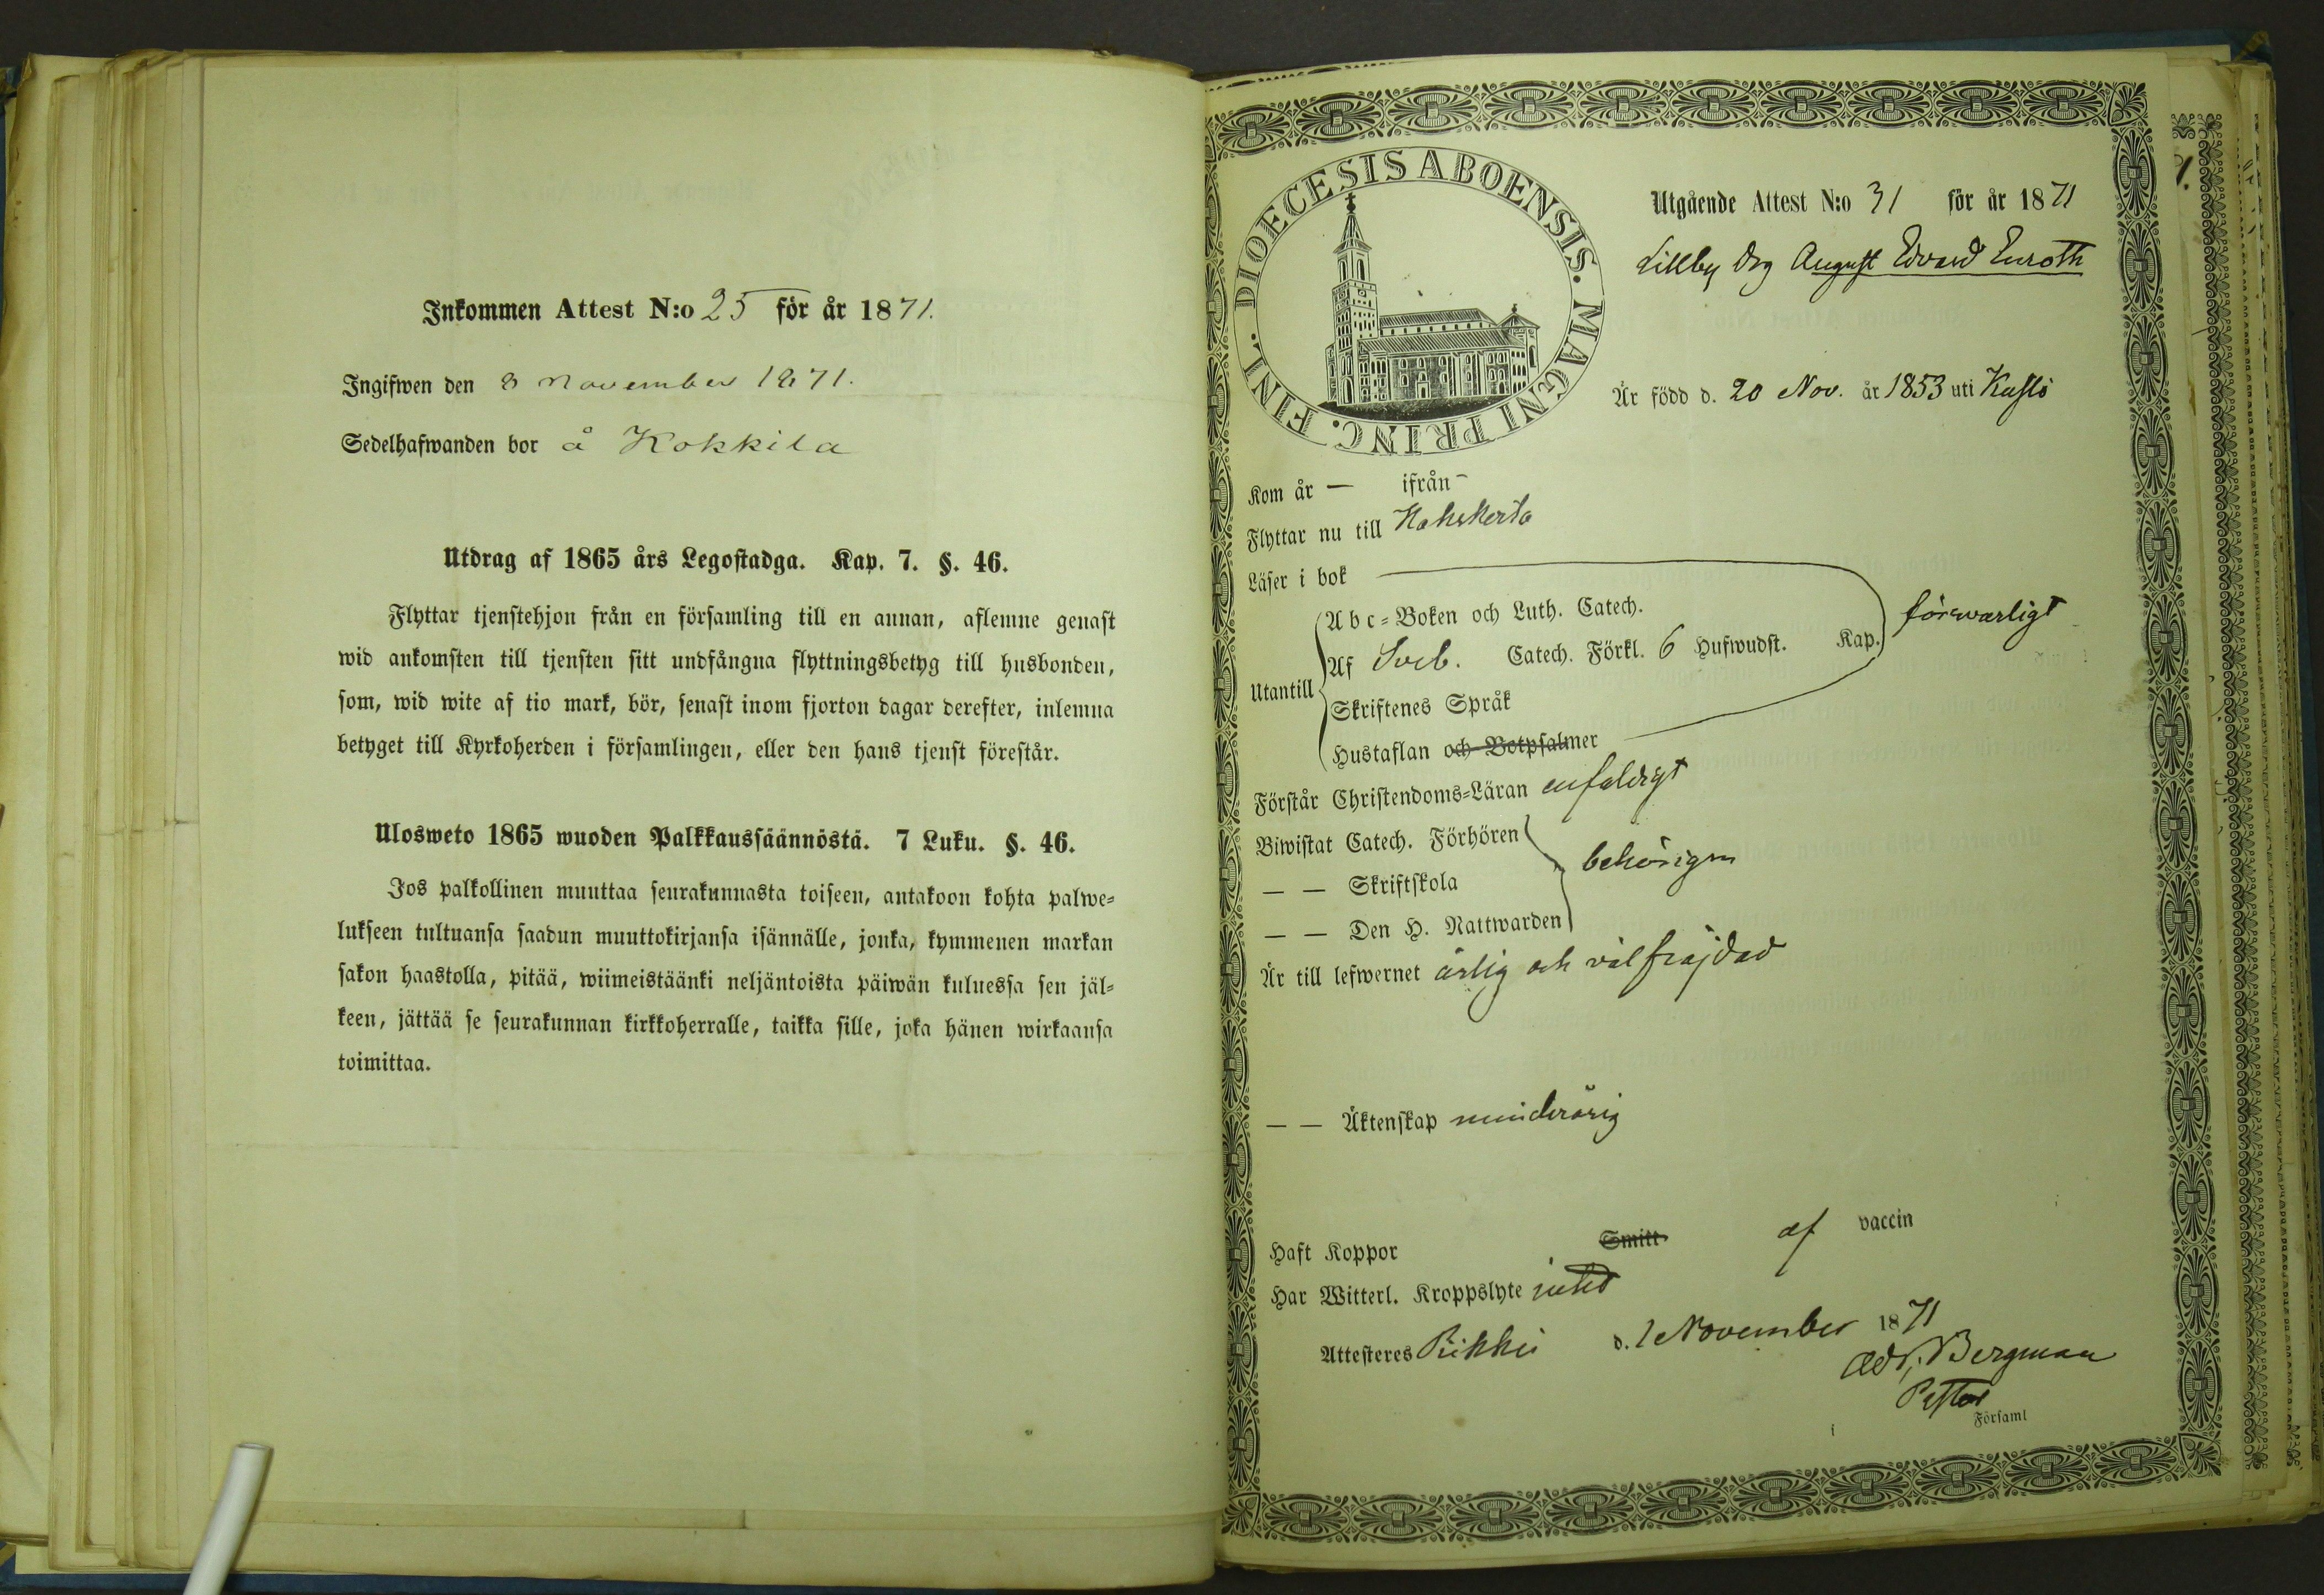 Inkommen Attest N:o 25 för år 1871.
Ingifwen den 8 November 1871.
Sedelhafwanden bor å Kokkila
Utdrag af 1865 års Legostadga. Kap. 7. §. 46.
Flyttar tjenstehjon från en församling till en annan, aflemne genast
wid ankomsten till tjensten sitt undfångna flyttningsbetyg till husbonden,
som, wid wite af tio mark, bör, senast inom fjorton dagar derefter, inlemna
betyget till Kyrkoherden i församlingen, eller den hans tjenst förestår.
Ulosweto 1865 wuoden Palkkaussäännöstä. 7 Luku. §. 46.
Jos palkollinen muuttaa seurakunnasta toiseen, antakoon kohta palwe-
lukseen tultuansa saadun muuttokirjansa isännälle, jonka, kymmenen markan
sakon haastolla, pitää, wiimeistäänki neljäntoista päiwän kuluessa sen jäl-
keen, jättää se seurakunnan kirkkoherralle, taikka sille, joka hänen wirkaansa
toimittaa.
DIOECESIS ABOENSIS. MAGNI PRINC. FINL.
Utgående Attest N:o 31 för år 1871
Lillby Drg August Edvard Enroth
Är född d. 20 Nov. år 1853 uti Kustö
Kom år — ifrån –
Flyttar nu till Kakskerta
Läser i bok
Utantill
Abc-Boken och Luth. Catech.
Af Sveb. Catech. Förkl. 6 Hufwudst. Kap. försvarligt
Skriftenes Språk
Hustaflan och Botpsalmer
Förstår Christendoms-Läran enfaldigt
Biwistat Catech. Förhören
— — Skriftskola behörigen
— — Den H. Nattwarden
Är till lefwernet ärlig och välfräjdad
— — Äktenskap minderårig
Haft Koppor Smitt af vaccin
Har Witterl. Kroppslyte intet
Attesteres Pikkis d. 1 November 1871
Adr. Bergman
Pastor
i Församl